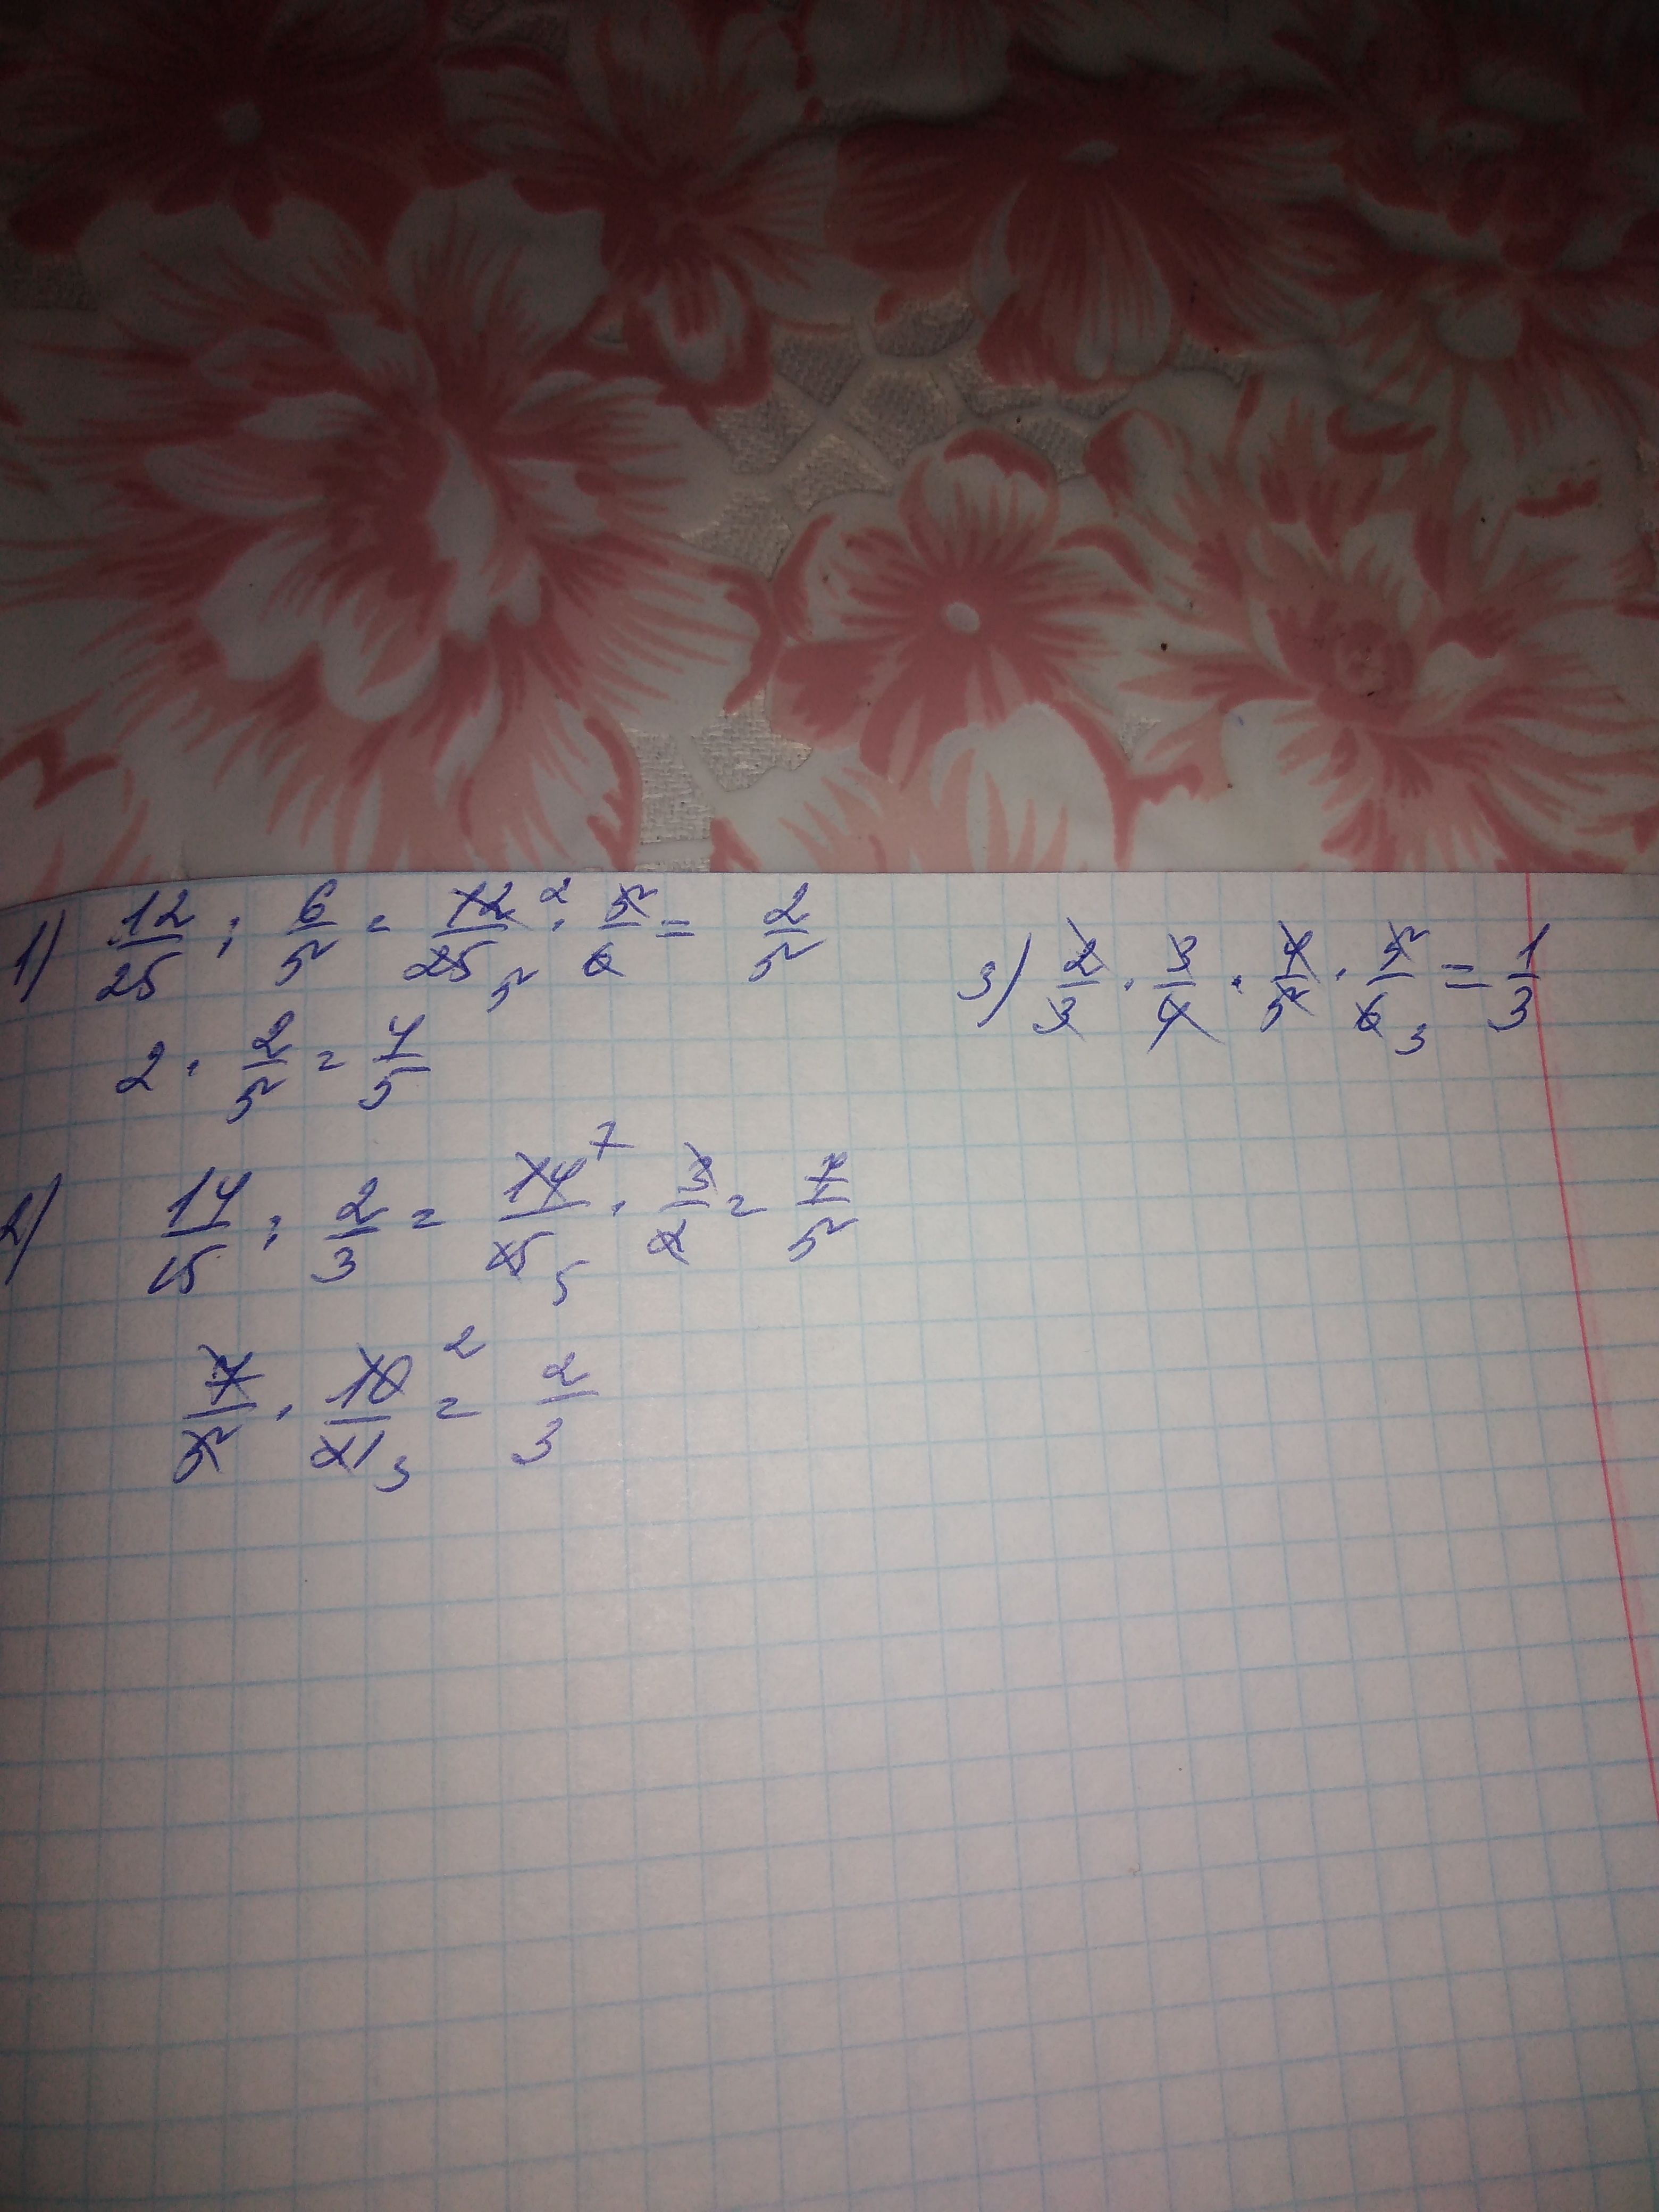 1) 12/25 : 6/5 = 12/25 2 5 · 5/6 = 2/5
2 · 2/5 = 4/5
2) 14/15 : 2/3 = 14/15 7 5 · 3/2 = 7/5
7/5 · 10/21 2 3 = 2/3
3) 2/3 · 3/4 · 4/5 · 5/6 3 = 1/3